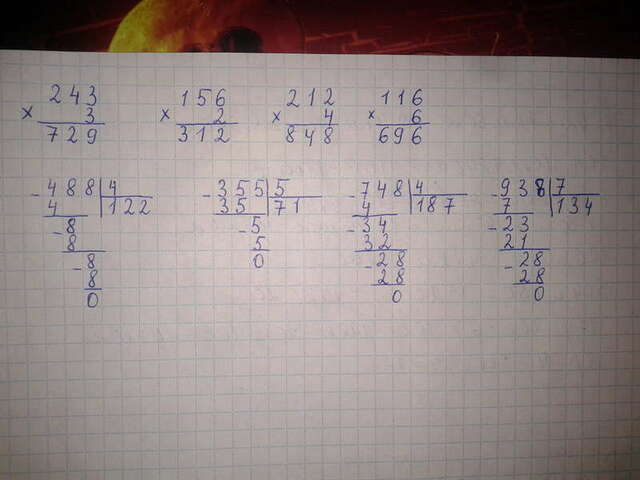 243 156 212 116
× 3 × 2 × 4 × 6
729 312 848 696
- 488 4 - 355 5 - 748 4 - 938 7
4 122 35 71 4 187 7 134
- 8 - 5 - 34 - 23
8 5 32 21
- 8 0 - 28 - 28
8 28 28
0 0 0